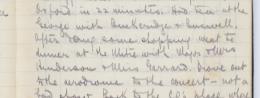 Oxford in 22 minutes. Had tea at the
George with Buckeridge & Buswell.
After doing some shopping went to
dinner at the Mitre with Major & Mrs
Henderson & Miss Gerrard. Drove out
to the aerodrome to the concert - not a
bad show. Back to the C.O's place